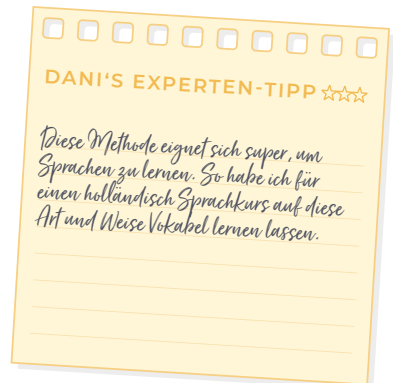 DANI'S EXPERTEN-TIPP
Diese Methode eignet sich super, um
Sprachen zu lernen. So habe ich für
einen holländisch Sprachkurs auf diese
Art und Weise Vokabel lernen lassen.